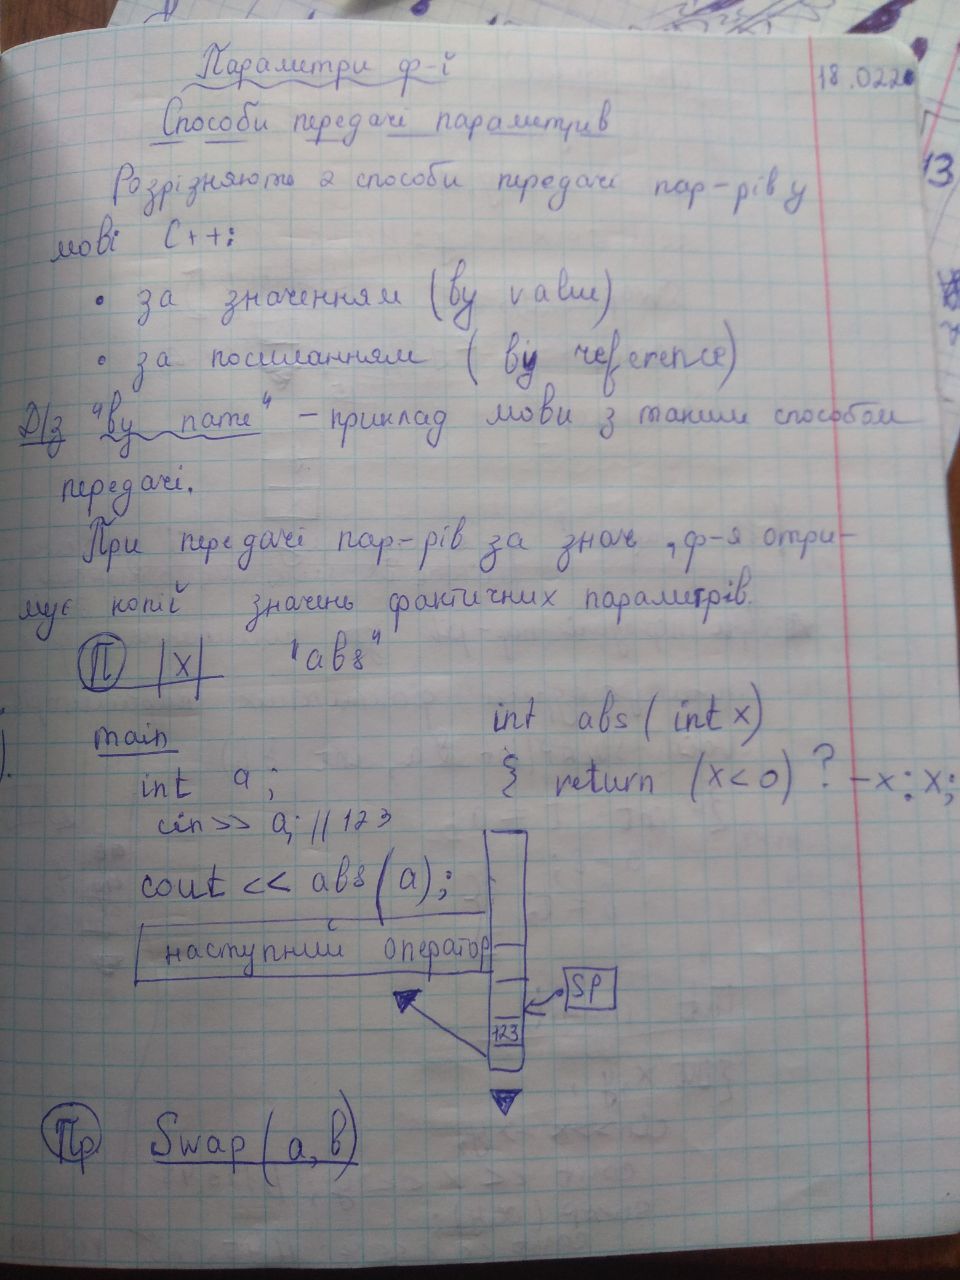 Параметри ф-ї
18.022
Способи передачі параметрів
Розрізняють 2 способи передачі пар-рів у
13
мові C++:
• за значенням (by value)
• за посиланням (by reference)
Д/з "by name" – приклад мови з таким способом
передачі.
При передачі пар-рів за знач, ф-я отри-
мує копії значень фактичних параметрів.
П |x| "abs"
main
int abs(int x)
int a;
{ return (x<0) ? -x : x;
cin >> a; // 123
cout << abs(a);
наступний оператор
SP
123
Пр Swap(a,b)